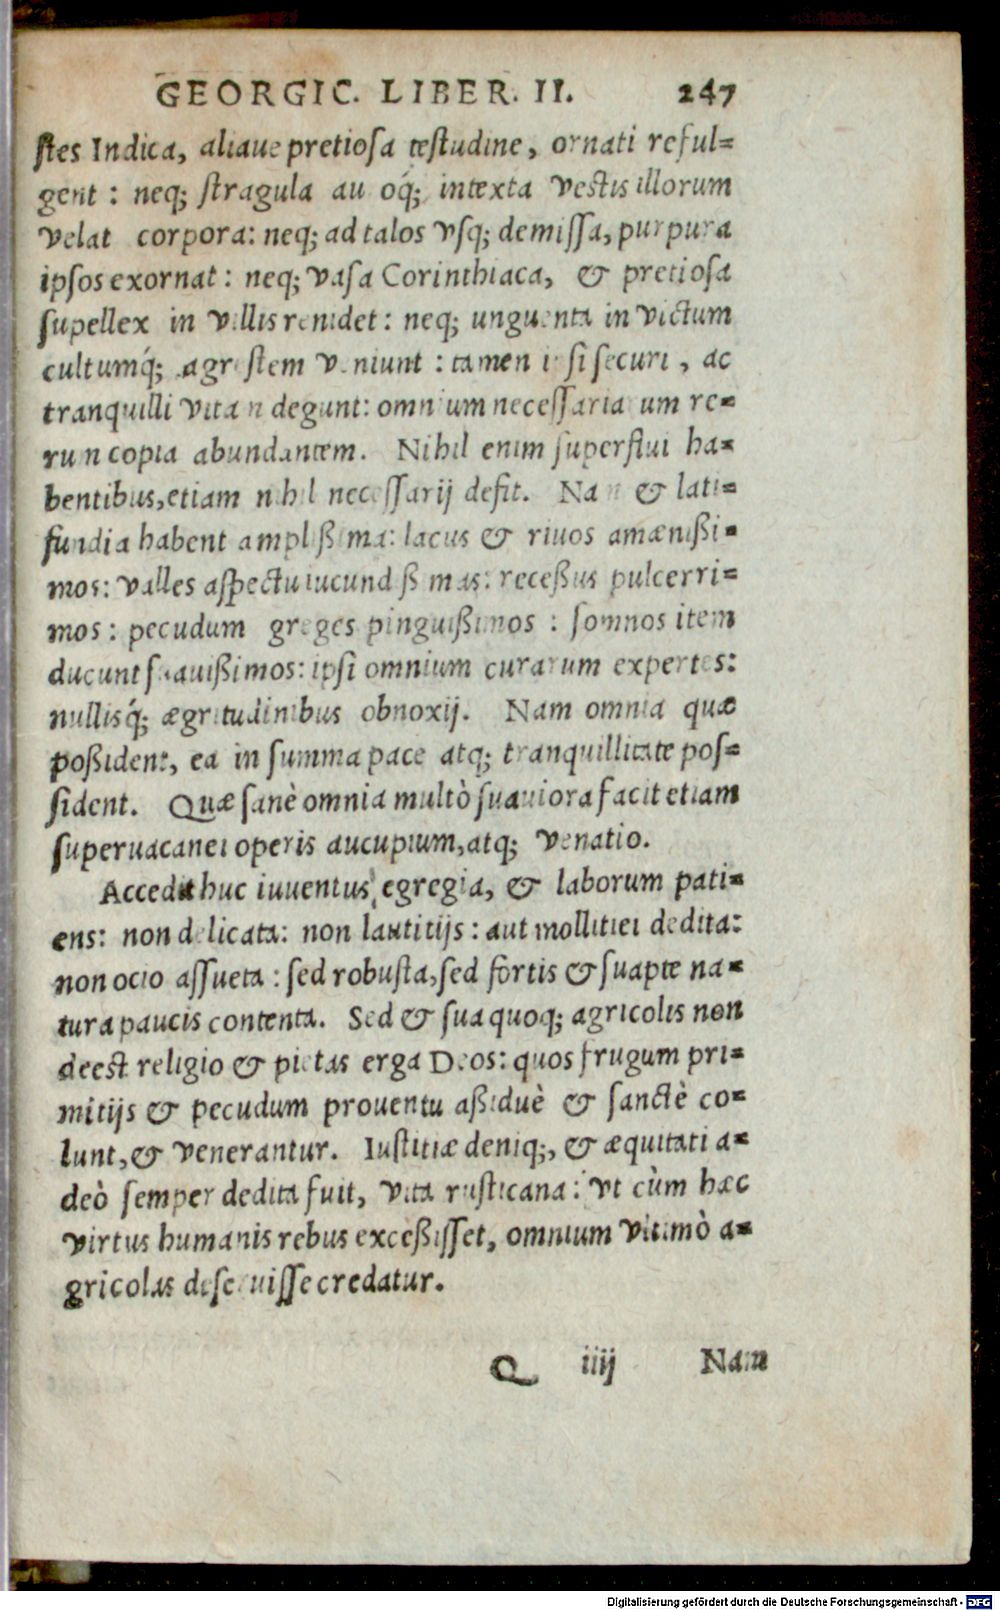 GEORGIC. LIBER. II. 247
ſtes Indica, aliaue pretioſa teſtudine, ornati reful=
gent: neq; ſtragula au oq́; intexta veſtis illorum
velat corpora: neq; ad talos vſq; demiſſa, purpura
ipſos exornat: neq; vaſa Corinthiaca, & pretioſa
ſupellex in villis renidet: neq; unguenta in victum
cultumq́; agreſtem veniunt: tamen ipſi ſecuri, ac
tranquilli vitam degunt: omnium neceſſariarum re=
rum copia abundantem. Nihil enim ſuperflui ha=
bentibus, etiam nihil neceſſarij defit. Nam & lati=
fundia habent ampliſsima: lacus & riuos amœniſsi=
mos: valles aſpectu iucundiſsimas: receſsus pulcerri=
mos: pecudum greges pinguiſsimos: ſomnos item
ducunt ſuauiſsimos: ipſi omnium curarum expertes:
nullisq́; ægritudinibus obnoxij. Nam omnia quæ
poſsident, ea in ſumma pace atq; tranquillitate poſ=
ſident. Quæ ſanè omnia multò ſuauiora facit etiam
ſuperuacanei operis aucupium, atq; venatio.
Accedit huc iuuentus egregia, & laborum pati=
ens: non delicata: non lautitijs: aut mollitiei dedita:
non ocio aſſueta: ſed robuſta, ſed fortis & ſuapte na=
tura paucis contenta. Sed & ſua quoq; agricolis non
deeſt religio & pietas erga Deos: quos frugum pri=
mitijs & pecudum prouentu aſsiduè & ſanctè co=
lunt, & venerantur. Iuſtitiæ deniq;, & æquitati a=
deò ſemper dedita fuit, vita ruſticana: vt cùm hæc
virtus humanis rebus exceſsiſſet, omnium vltimò a=
gricolas deſeruiſſe credatur.
Q iiij Nam
Digitalisierung gefördert durch die Deutsche Forschungsgemeinschaft - DFG